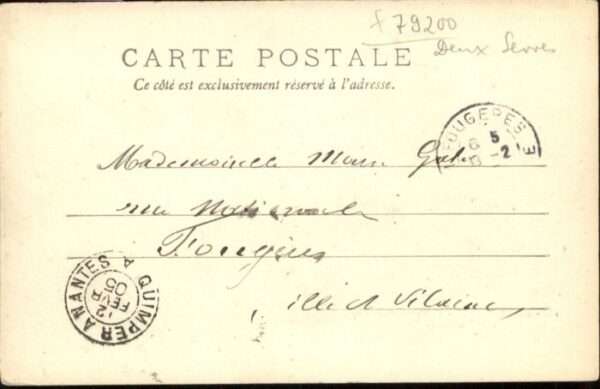 f 79200
Deux Sevres
CARTE POSTALE
Ce côté est exclusivement réservé à l'adresse.
FOUGERES
5
-2
E
Mademoiselle
rue Nationale
Fougères
ille et Vilaine
NANTES A QUIMPER
2
FEVR
05